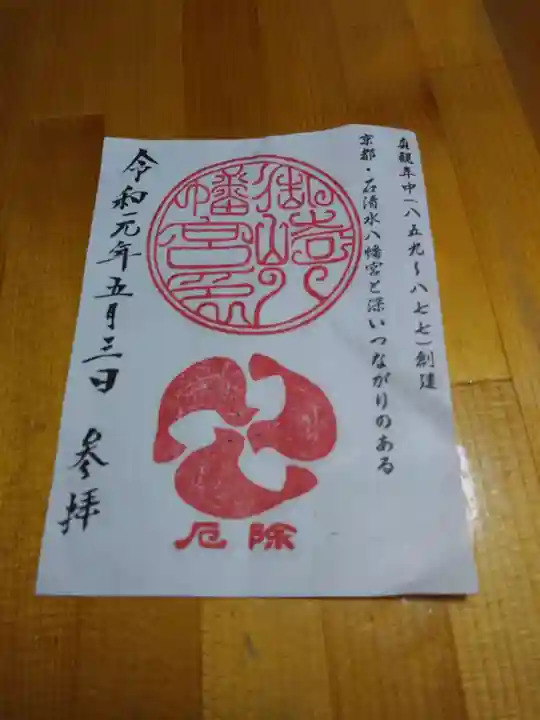 貞観年中(八五九~八七七)創建
京都・石清水八幡宮と深いつながりのある
御崎八
幡宮印
厄除
令和元年五月三日 参拝